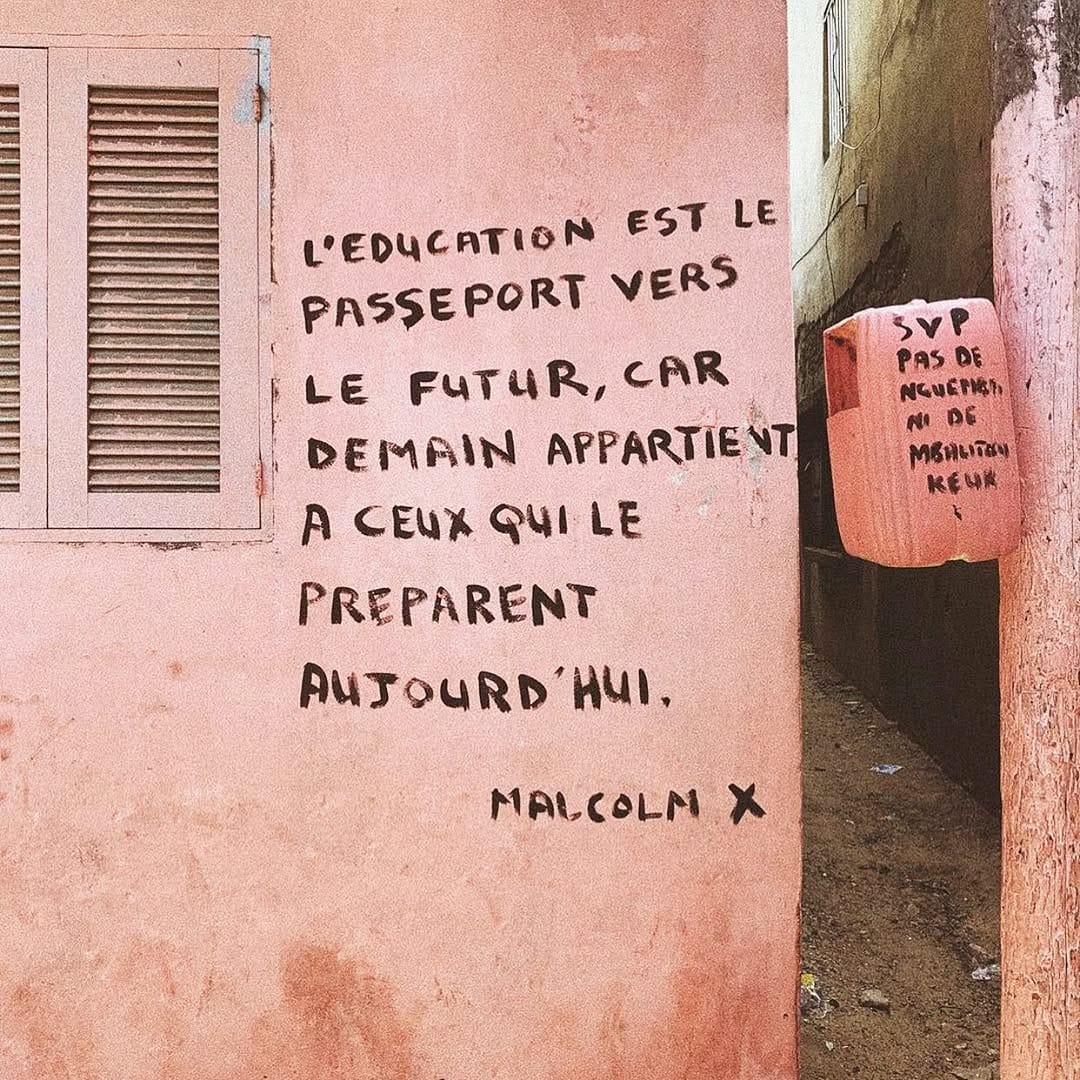 L'EDUCATION EST LE
PASSEPORT VERS
LE FUTUR, CAR
DEMAIN APPARTIENT
A CEUX QUI LE
PREPARENT
AUJOURD'HUI.
MALCOLM X
SVP
PAS DE
NI DE